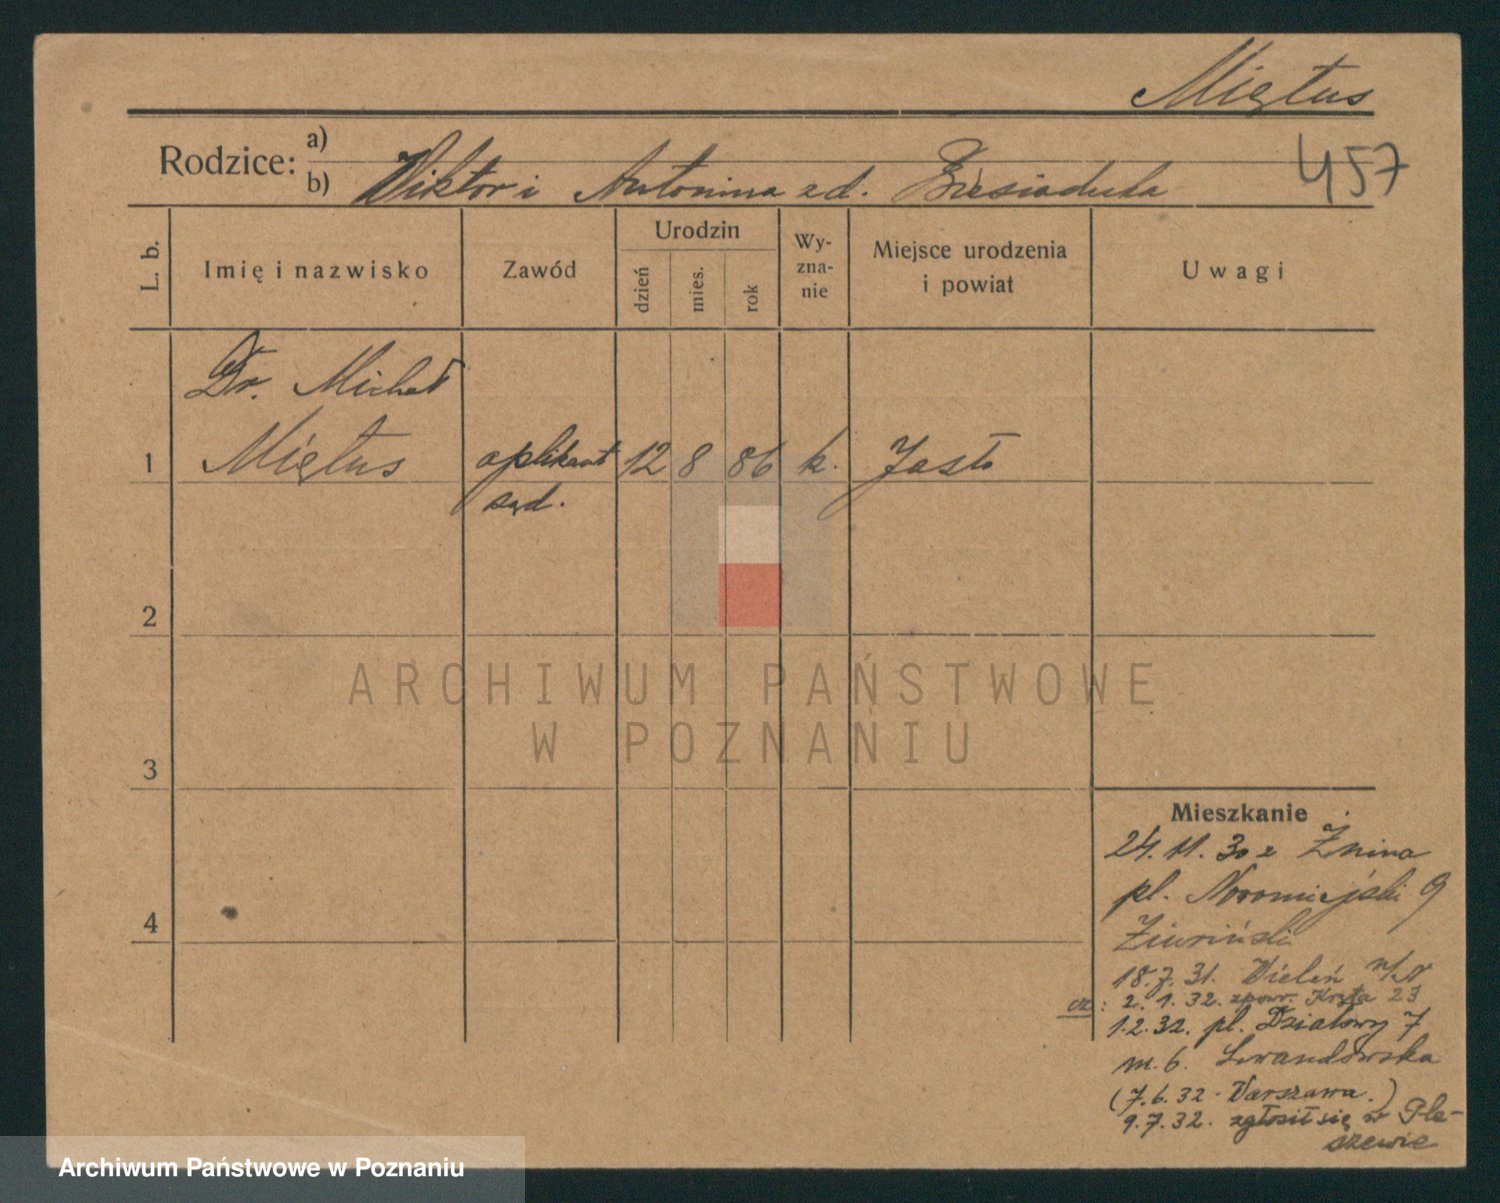 Miętus
Rodzice: a)
b) Wiktor i Antonina z d. Biesiadecka
457
L. b.
Imię i nazwisko
Zawód
Urodzin
dzień
mies.
rok
Wy-
zna-
nie
Miejsce urodzenia
i powiat
Uwagi
Dr. Michał
1 Miętus aplikant 12 8 86 k. Jasło
sąd.
2
3
4
ARCHIWUM PAŃSTWOWE
W POZNANIU
Mieszkanie
24. 11. 30 z Żnina
pl. Nowomiejski 9
18. 7. 31. Wieleń n/N
2. 1. 32. zpowr. 23
1. 2. 32. pl. Działowy 7
m. 6. Lewandowska
(7. 6. 32 - Warszawa.)
9. 7. 32. zgłosił się w Ple-
szewie
Archiwum Państwowe w Poznaniu